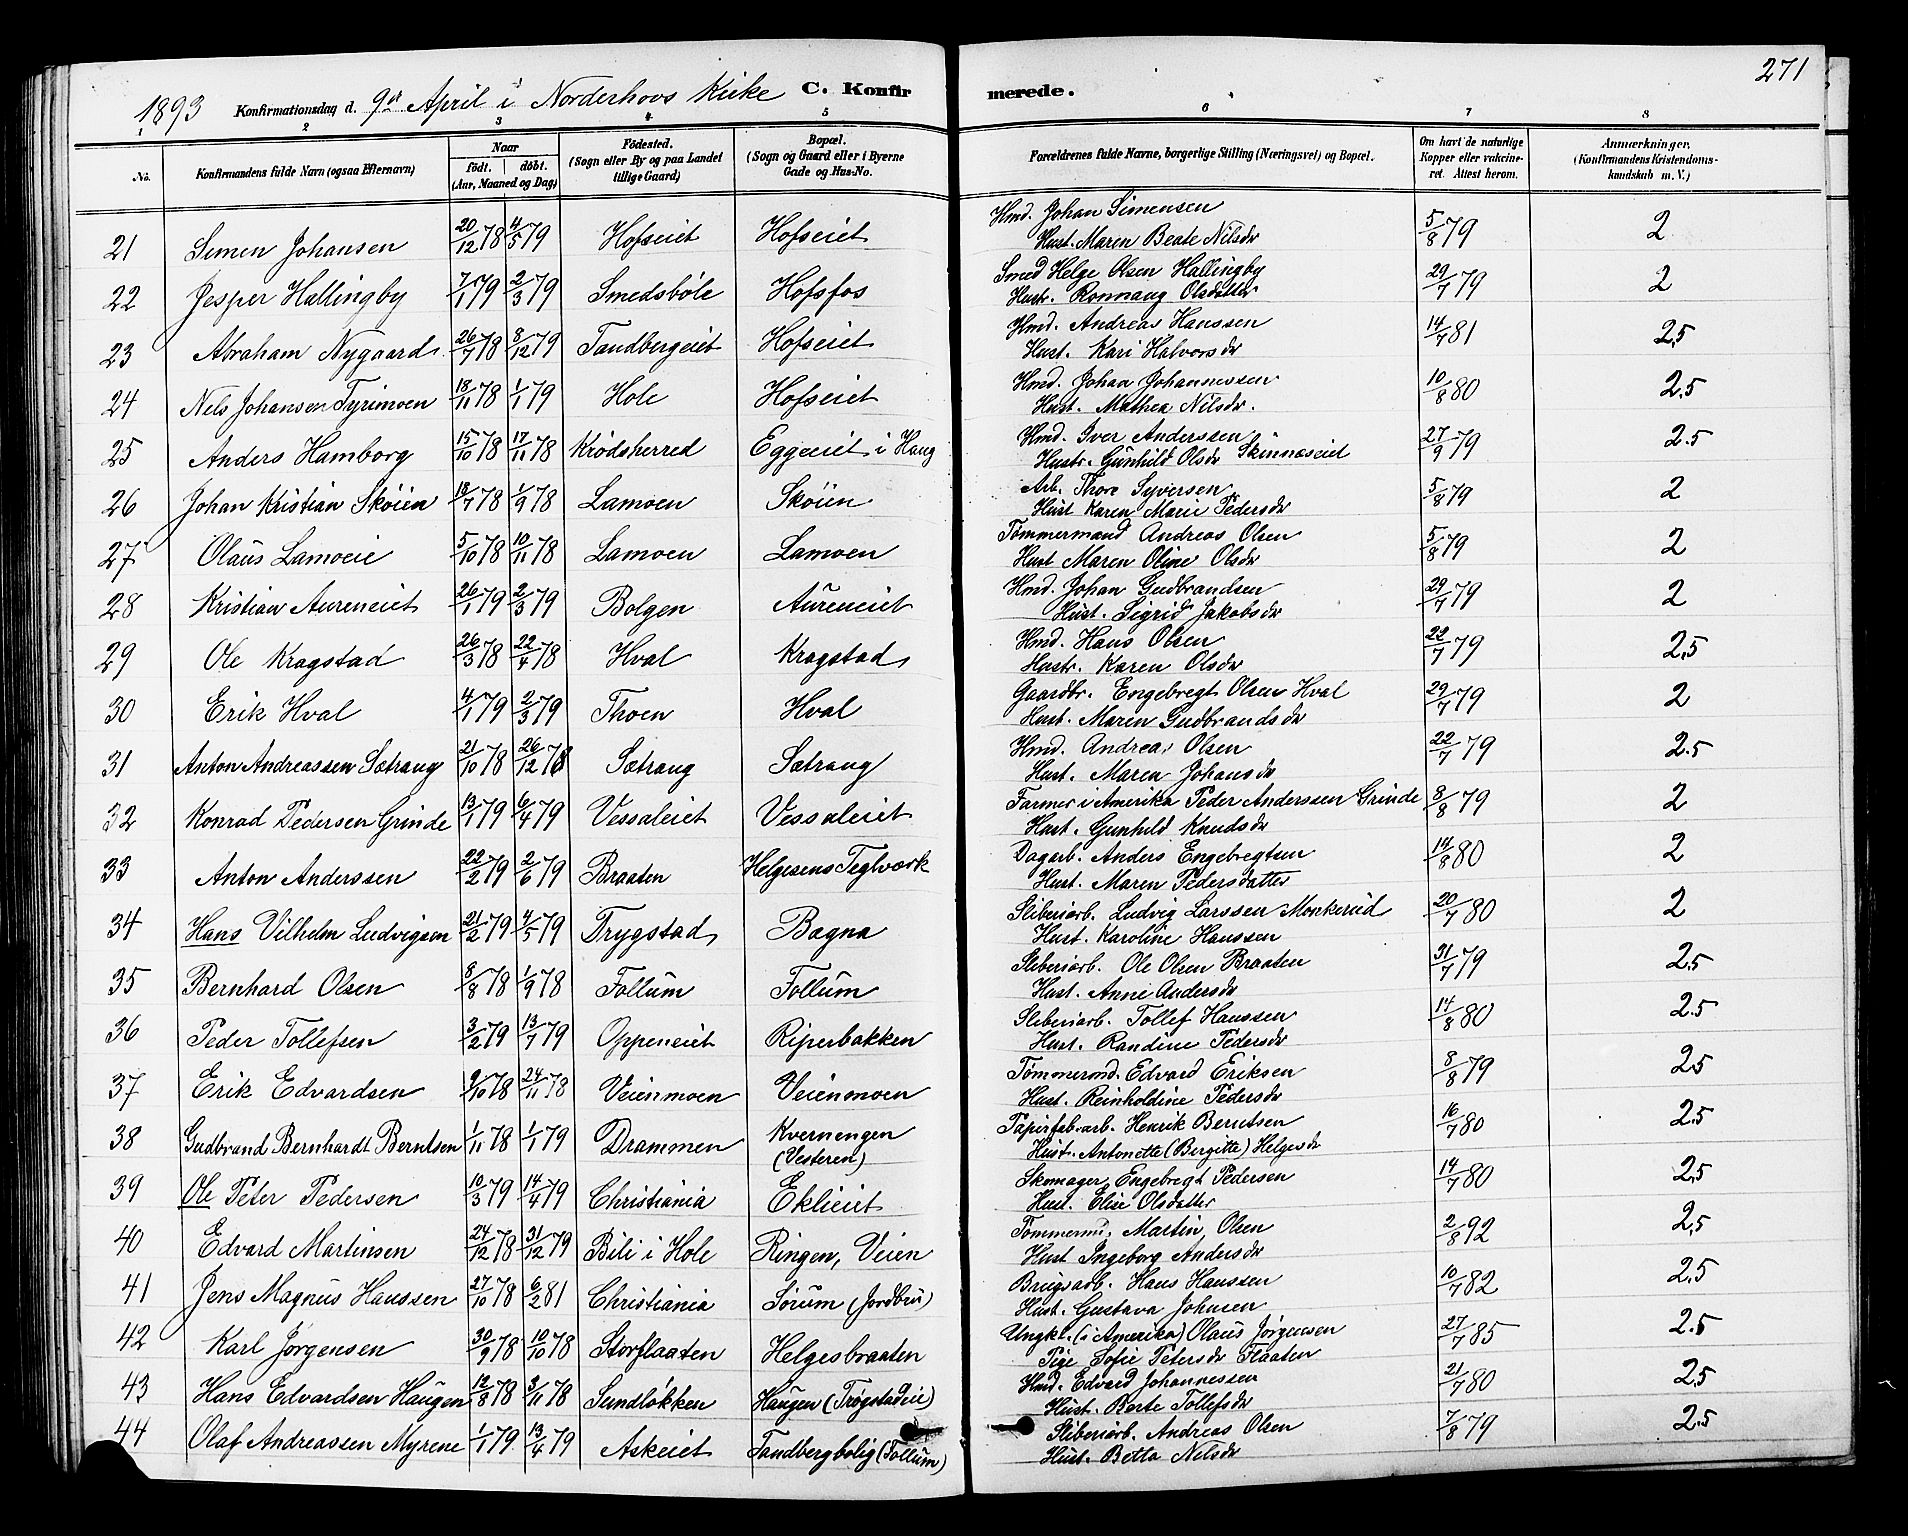 271
1893 Konfirmationsdag d. 9de April i Norderhovs Kirke C. Konfirmerede.
1 2 3 4 5 6 7 8
No. Konfirmandens fulde Navn (ogsaa Efternavn) Naar født. døbt. (Aar, Maaned og Dag) Fødested. (Sogn eller By og paa Landet tillige Gaard) Bopæl. (Sogn og Gaard eller i Byerne Gade og Hus-No. Forældrenes fulde Navne, borgerlige Stilling (Næringsvei) og Bopæl. Om havt de naturlige Kopper eller vakcineret. Attest herom. Anmærkninger. (Konfirmandens Kristendomskundskab m. V.)
21 Simen Johansen 20/12 78 4/5 79 Hofseiet Hofseiet Hmd. Johan Simensen 5/8 79 2
Hust. Maren Beate Nilsdr
22 Jesper Hallingby 7/1 79 2/3 79 Smedsbøle Hofsfos Smed Helge Olsen Hallingby 29/7 79 2
Hustr. Ronnaug Olsdatter
23 Abraham Nygaard 26/7 78 8/12 79 Tandbergeiet Hofseiet Hmd. Andreas Hanssen 14/7 81 2,5
Hust. Kari Halvorsdr
24 Nels Johansen Tyrimoen 18/11 78 1/1 79 Hole Hofseiet Hmd. Johan Johannessen 10/8 80 2,5
Hust. Mathea Nilsdr.
25 Anders Hamborg 15/10 78 17/11 78 Krødsherred Eggeeiet i Haug Hmd. Iver Anderssen 27/9 79 2.5
Hustr. Gunhild Olsdr Skinnæseiet
26 Johan Kristian Skøien 18/7 78 1/9 78 Lamoen Skøien Arb. Thore Syversen 5/8 79 2
Hust Karen Marie Pedersdr
27 Olaus Lamoeie 5/10 78 10/11 78 Lamoen Lamoen Tømmermand Andreas Olsen 5/8 79 2
Hust Maren Oline Olsdr
28 Kristian Aureneiet 26/1 79 2/3 79 Bolgen Aureneiet Hmd. Johan Gudbrandsen 29/7 79 2
Hust. Sigrid Jakobsdr
29 Ole Kragstad 26/3 78 22/4 78 Hval Kragstad Hmd. Hans Olsen 22/7 79 2,5
Hustr. Karen Olsdr
30 Erik Hval 4/1 79 2/3 79 Thoen Hval Gaardbr. Engebregt Olsen Hval 29/7 79 2
Hust. Maren Gudbrandsdr
31 Anton Andreassen Sætrang 21/10 78 26/12 78 Sætrang Sætrang Hmd. Andreas Olsen 22/7 79 2.5
Hust. Maren Johansdr
32 Konrad Pedersen Grinde 13/1 79 6/4 79 Vessaleiet Vessaleiet Farmer i Amerika Peder Anderssen Grinde 8/8 79 2
Hust. Gunhild Knudsdr
33 Anton Anderssen 22/2 79 2/6 79 Braaten Helgesens Teglværk Dagarb. Anders Engebregtsen 14/8 80 2
Hust. Maren Pedersdatter
34 Hans Vilhelm Ludvigsen 21/2 79 4/5 79 Trygstad Bagna Sliberiarb. Ludvig Larssen Monkerud 20/7 80 2
Hust. Karoline Hanssen
35 Bernhard Olsen 8/8 78 1/9 78 Follum Follum Sliberiarb. Ole Olsen Braaten 31/7 79 2.5
Hust. Anne Andersdr
36 Peder Tollefsen 3/2 79 13/7 79 Oppeneiet Riperbakken Sliberiarb. Tollef Hanssen 14/8 80 2.5
Hust. Randine Pedersdr
37 Erik Edvardsen 9/10 78 24/11 78 Veienmoen Veienmoen Tømmermd. Edvard Eriksen 8/8 79 2.5
Hust. Reinholdine Pedersdr
38 Gudbrand Bernhardt Berntsen 1/11 78 1/1 79 Drammen Kvernengen (Vesteren) Papirfab.arb. Henrik Berntsen 16/7 80 2.5
Hust. Antonette (Bergitte) Helgesdr
39 Ole Peter Pedersen 10/3 79 14/4 79 Christiania Eklieiet Skomager Engebregt Pedersen 14/7 80 2.5
Hust. Elise Olsdatter
40 Edvard Martinsen 24/12 78 31/12 79 Bili i Hole Ringen, Veien Tømmermd. Martin Olsen 2/8 92 2,5
Hust Ingeborg Andersdr
41 Jens Magnus Hanssen 27/10 78 6/2 81 Christiania Sørum (Jordbru) Brugsarb. Hans Hanssen 10/7 82 2,5
Hust. Gustava Johnsen
42 Karl Jørgensen 30/9 78 10/10 78 Storflaaten Helgesbraaten Ungkl. (i Amerika) Olaus Jørgensen 27/7 85 2.5
Pige Sofie Petersdr Flaaten
43 Hans Edvardsen Haugen 12/8 78 3/11 78 Sundløkken Haugen (Trøgstadeie) Hmd. Edvard Johannessen 21/7 80 2.5
Hust. Berte Tollefsdr
44 Olaf Andreassen Myrene 1/1 79 13/4 79 Askeiet Tandbergbolig (Follum) Sliberiarb. Andreas Olsen 7/8 79 2.5
Hust. Betta Nilsdr